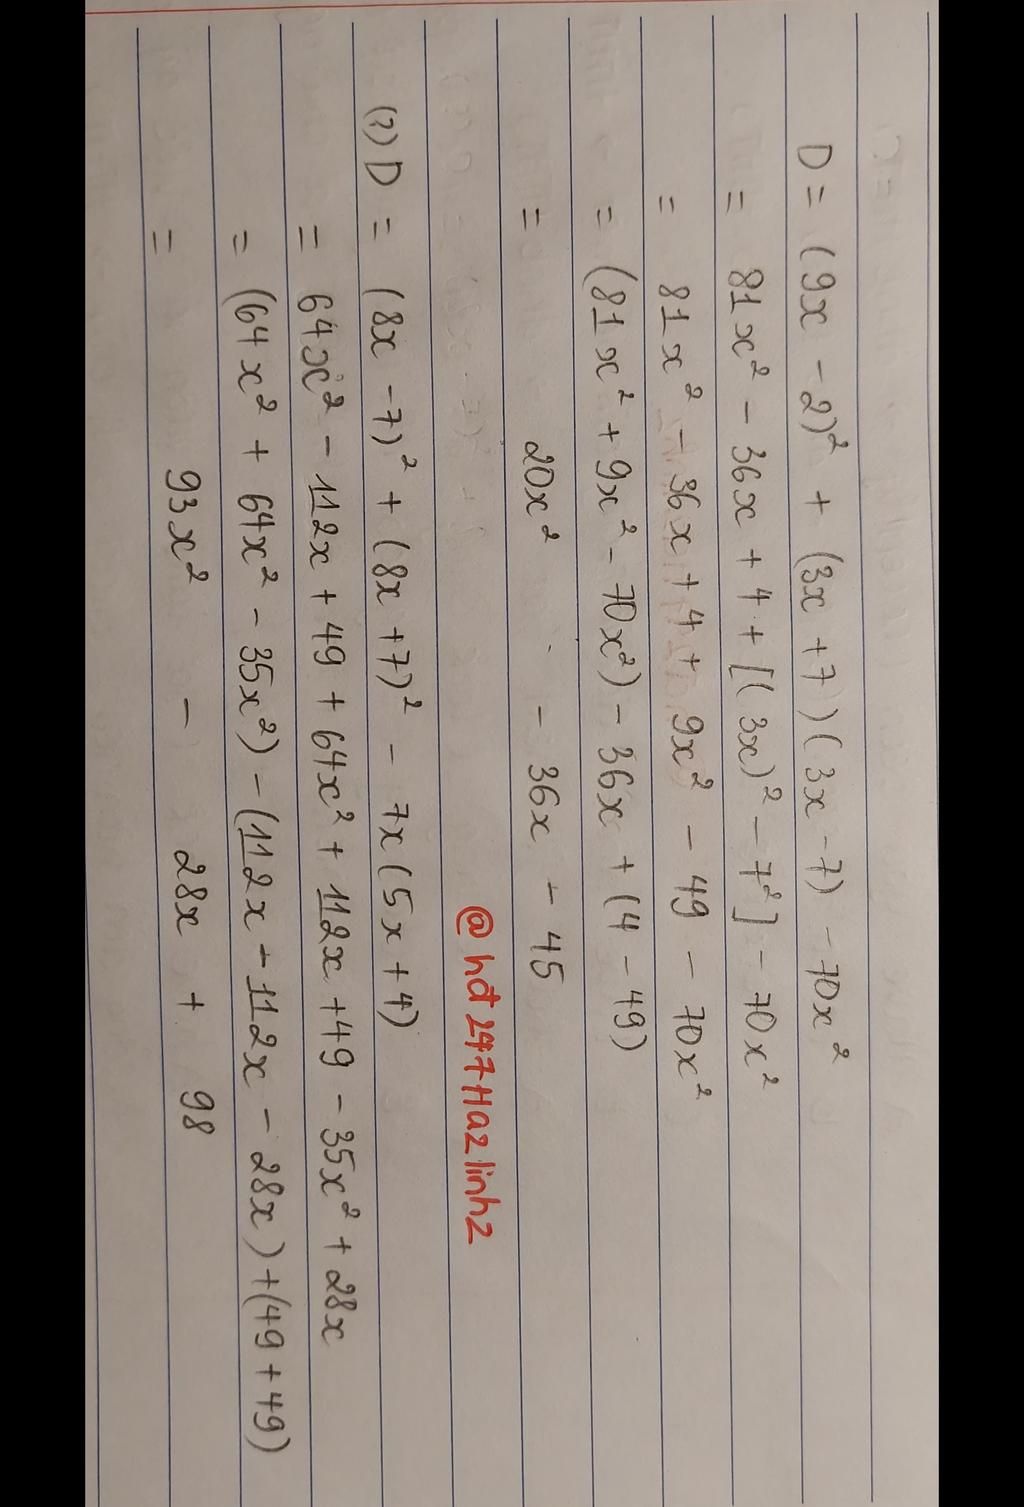 D = (9x - 2)² + (3x + 7)(3x - 7) - 70x²
= 81x² - 36x + 4 + [(3x)² - 7²] - 70x²
= 81x² - 36x + 4 + 9x² - 49 - 70x²
= (81x² + 9x² - 70x²) - 36x + (4 - 49)
= 20x² - 36x - 45
@hđ247Hazlinhz
(?) D = (8x - 7)² + (8x + 7)² - 7x(5x + 4)
= 64x² - 112x + 49 + 64x² + 112x + 49 - 35x² + 28x
= (64x² + 64x² - 35x²) - (112x - 112x - 28x) + (49 + 49)
= 93x² - 28x + 98